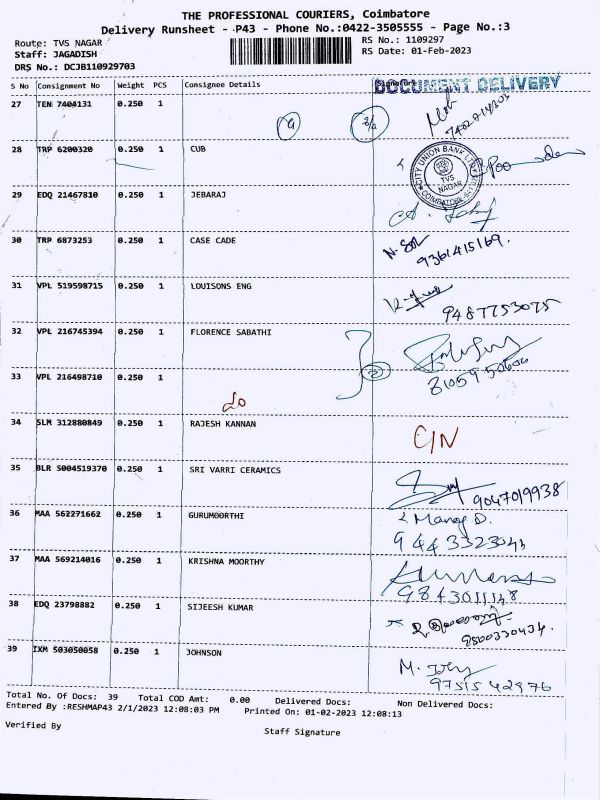 THE PROFESSIONAL COURIERS, Coimbatore
Delivery Runsheet - P43 - Phone No.:0422-3505555 - Page No.:3
Route: TVS NAGAR RS No.: 1109297
Staff: JAGADISH RS Date: 01-Feb-2023
DRS No.: DCJB110929703
S No Consignment No Weight PCS Consignee Details
DOCUMENT DELIVERY
27 TEN 7404131 0.250 1
28 TRP 6200320 0.250 1 CUB
CITY UNION BANK LTD
TVS
NAGAR
29 EDQ 21467810 0.250 1 JEBARAJ
30 TRP 6873253 0.250 1 CASE CADE
9361415169.
31 VPL 519598715 0.250 1 LOUISONS ENG
9487753075
32 VPL 216745394 0.250 1 FLORENCE SABATHI
33 VPL 216498710 0.250 1
34 SLM 312880849 0.250 1 RAJESH KANNAN
C/N
35 BLR 5004519370 0.250 1 SRI VARRI CERAMICS
9047019938
36 MAA 562271662 0.250 1 GURUMOORTHI
Manoj D.
37 MAA 569214016 0.250 1 KRISHNA MOORTHY
9843011148
38 EDQ 23798882 0.250 1 SIJEESH KUMAR
39 IXM 503050058 0.250 1 JOHNSON
9751542976
Total No. Of Docs: 39 Total COD Amt: 0.00 Delivered Docs: Non Delivered Docs:
Entered By :RESHMAP43 2/1/2023 12:08:03 PM Printed On: 01-02-2023 12:08:13
Verified By Staff Signature